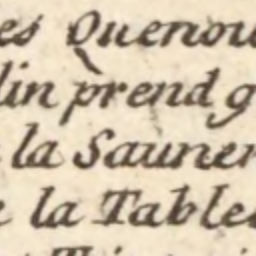 es Quenou
lin prend g
la Sauner
e la Table